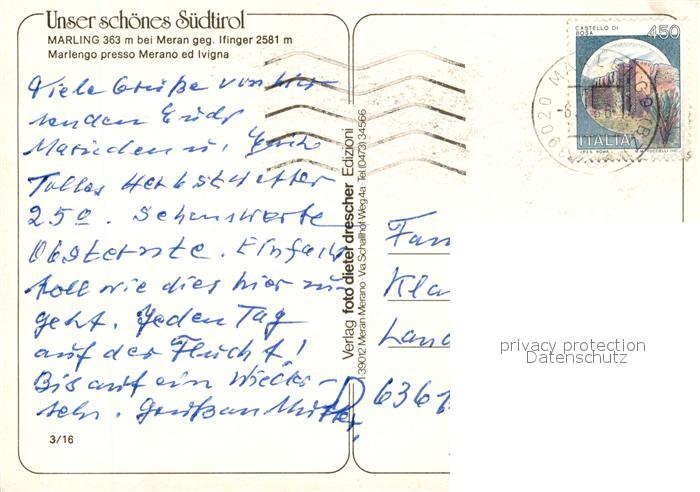 Unser schönes Südtirol
MARLING 363 m bei Meran geg. Ifinger 2581 m
Marlengo presso Merano ed Ivigna
Viele Grüße von hier
senden Euch
u.
Tolles Herbstwetter
25º. Sehenswerte
Obsternte. Einfach
toll wie dies hier zu-
geht. Jeden Tag
auf der Flucht!
Bis auf ein Wieder-
sehn. Gruß an Mutter
3/16
Verlag foto dieter drescher Edizioni
39012 Meran Merano · Via Schallhof Weg 4a · Tel (0473) 34566
CASTELLO DI
BOSA
450
ITALIA
I.P.Z.S. ROMA
39020
Fam
Kla
Land
D 6361
privacy protection
Datenschutz